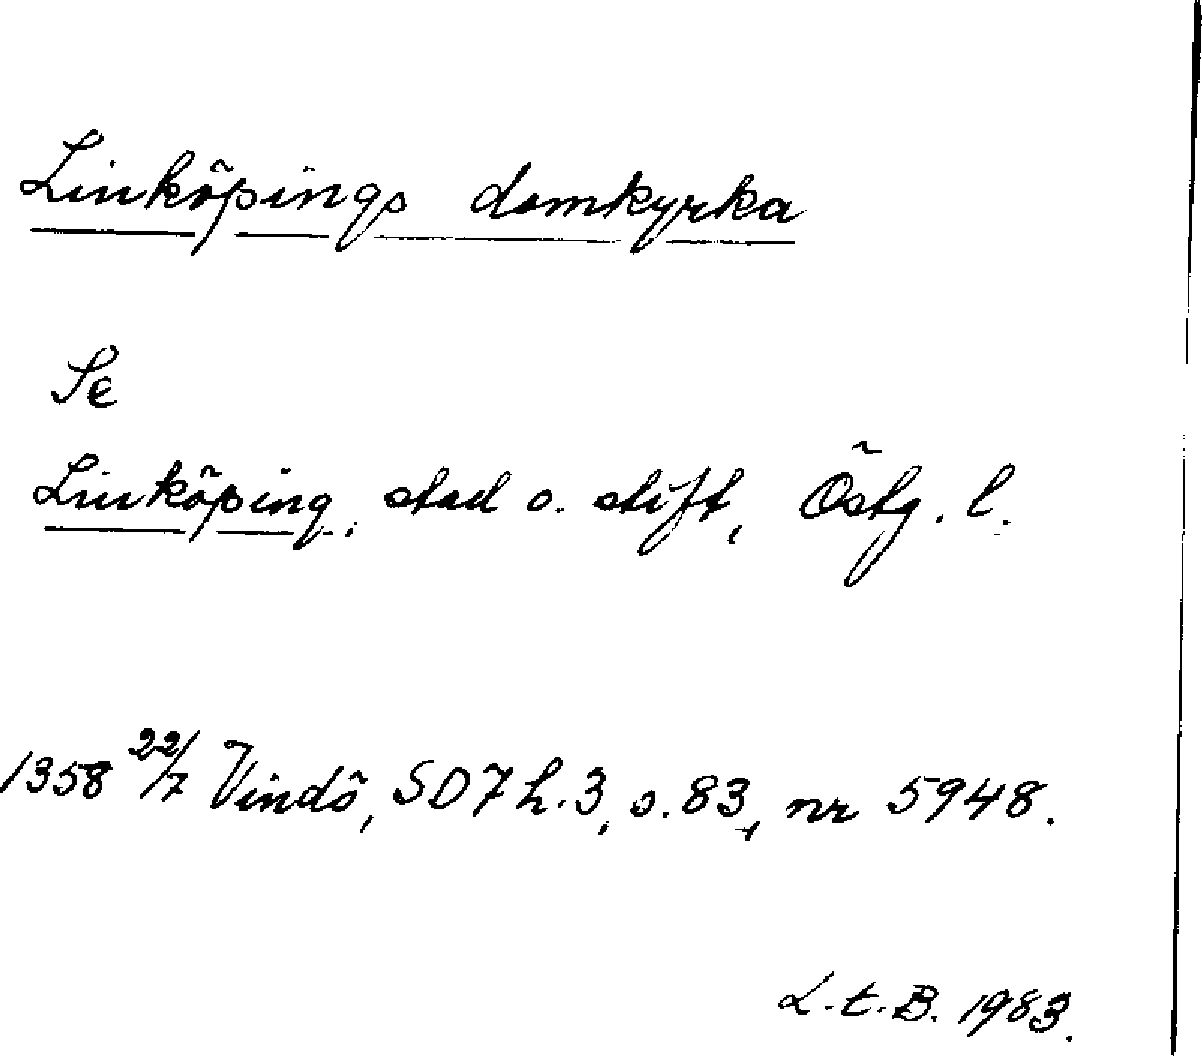 Linköpings domkyrka
Se
Linköping, stad o. stift, Östg. l.
1358 22/7 Vindö, SD7 h.3, s.83, nr 5948.
L.t.B. 1983.